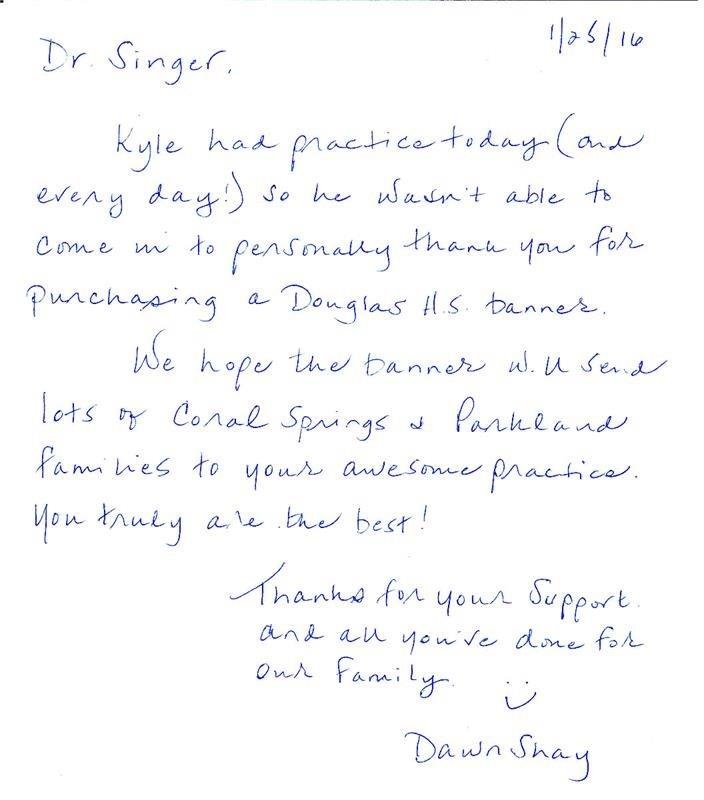 1/25/16
Dr. Singer,
Kyle had practice today (and
every day!) so he wasn't able to
come in to personally thank you for
purchasing a Douglas H.S. banner.
We hope the banner will send
lots of Coral Springs & Parkland
families to your awesome practice.
You truly are the best!
Thanks for your support
and all you've done for
our family. :)
Dawn Shay